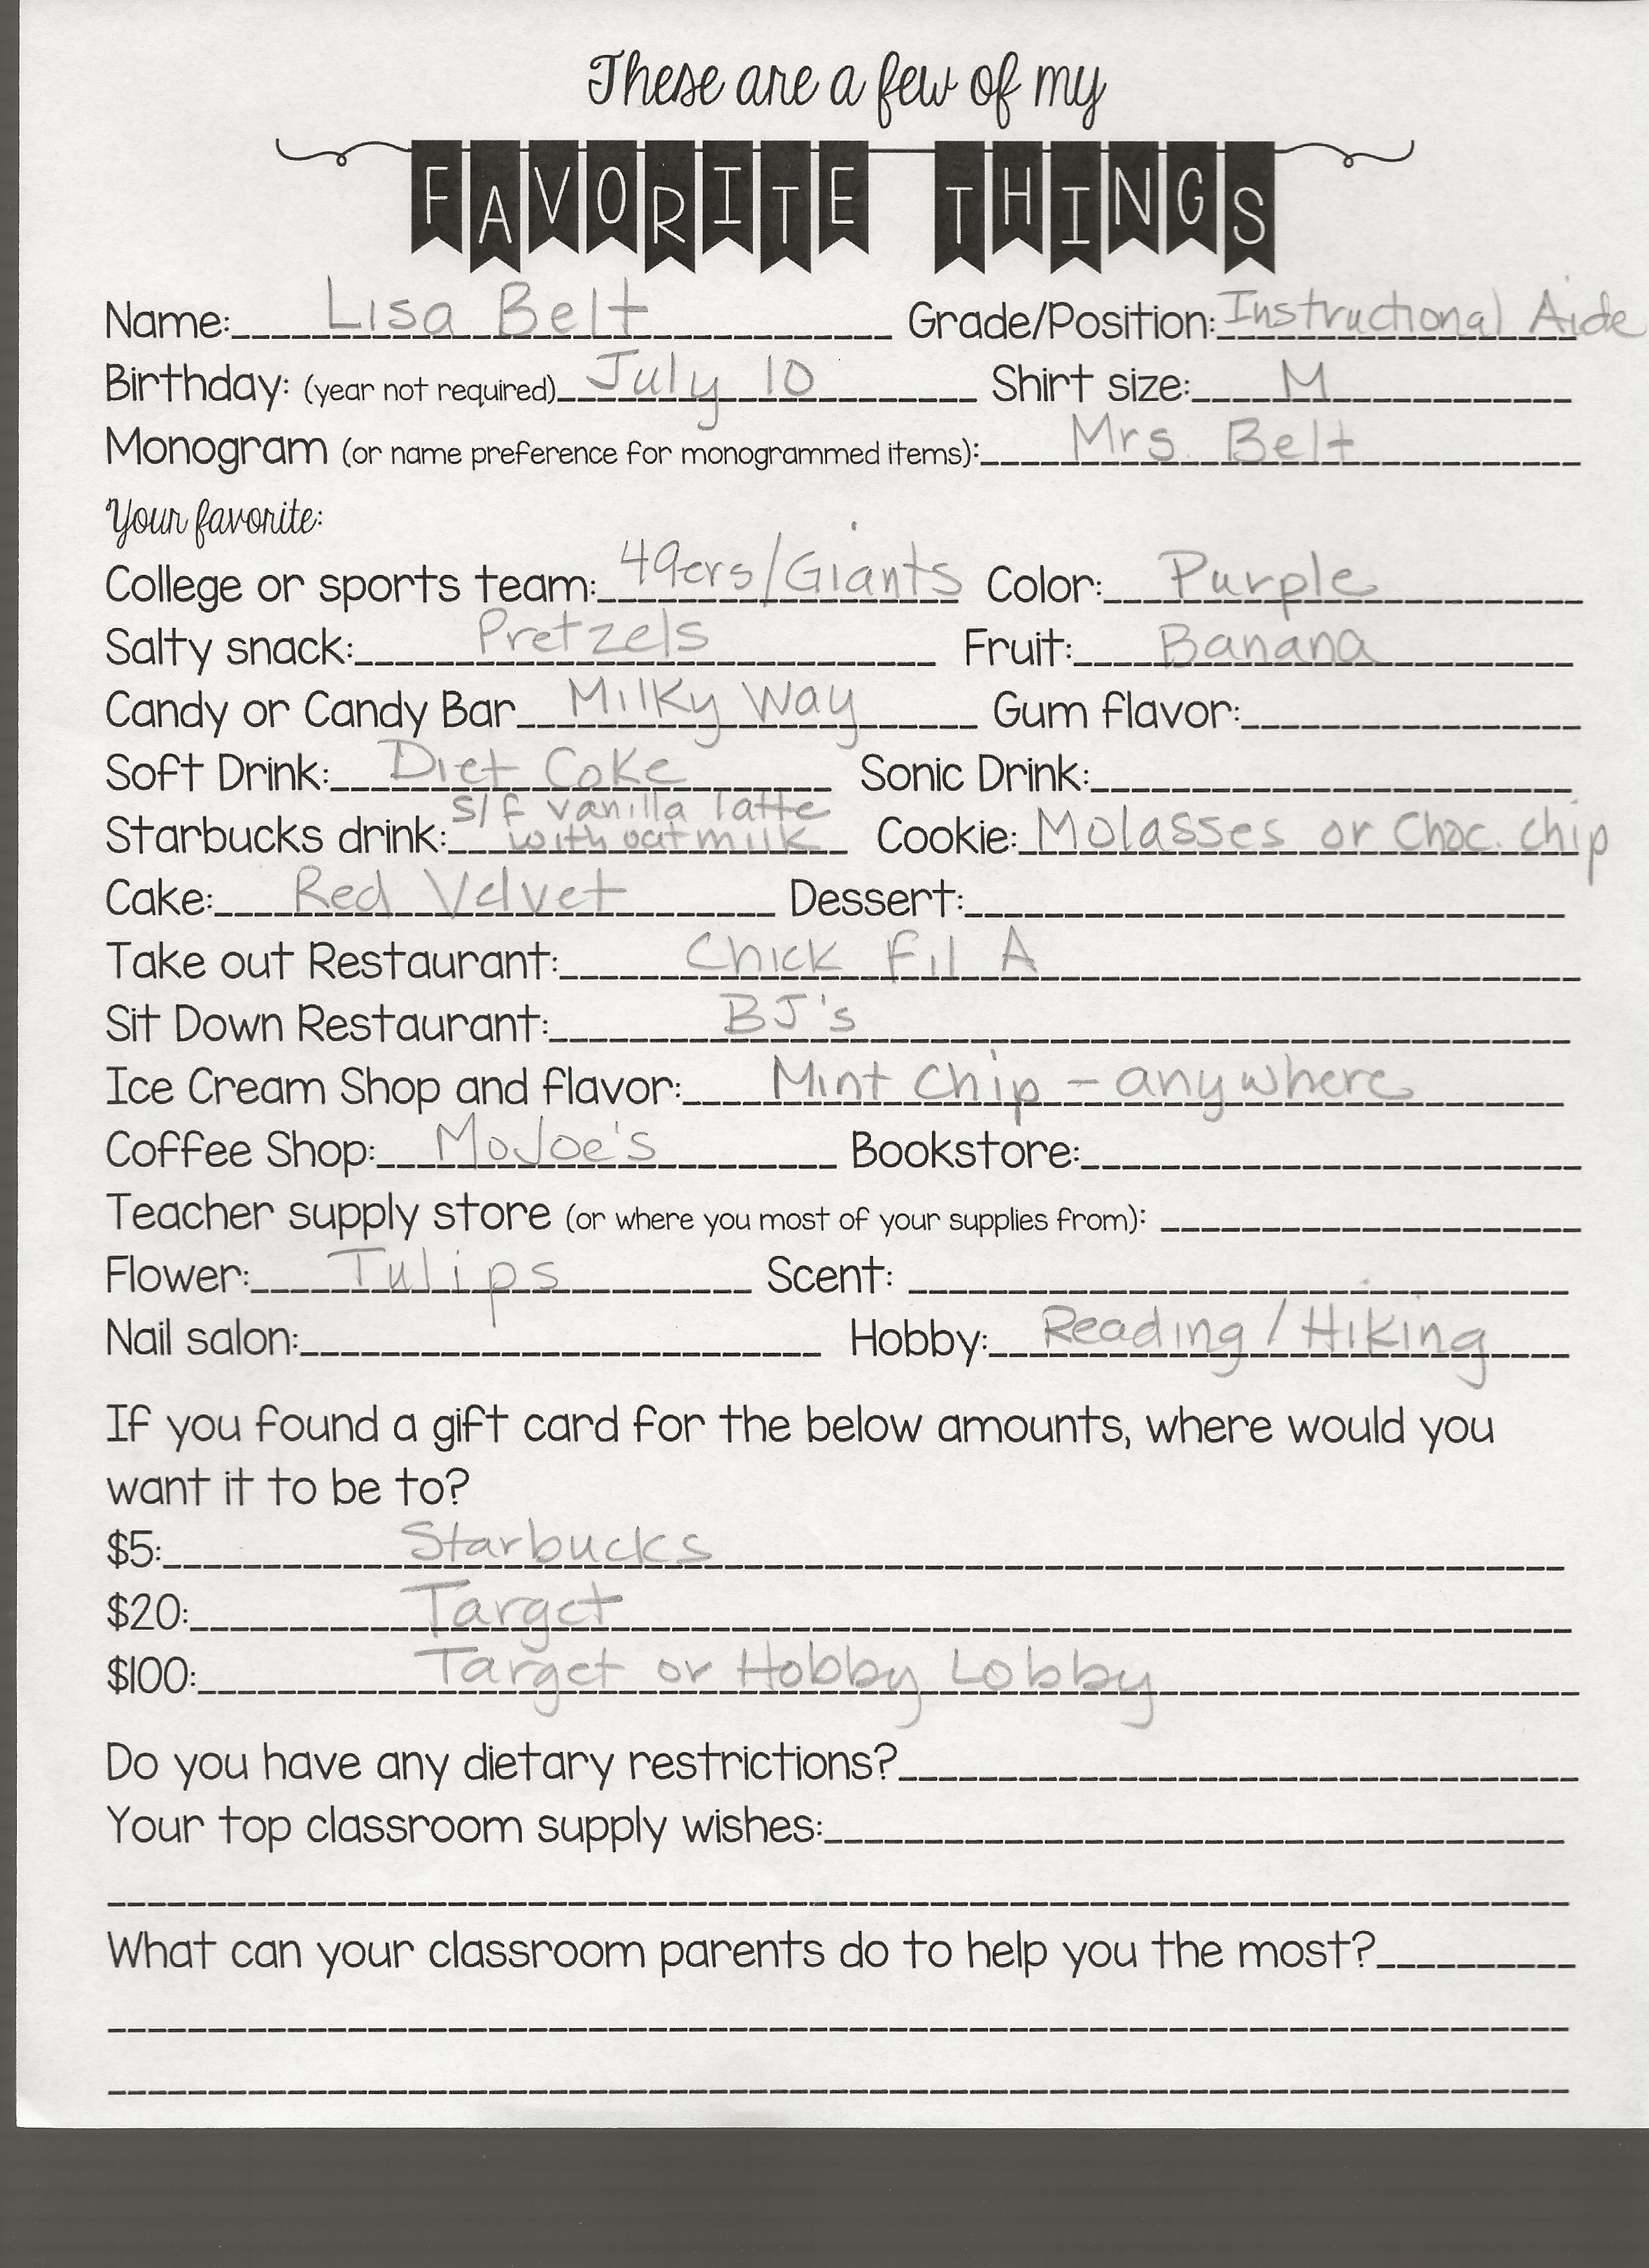 These are a few of my
FAVORITE THINGS
Name: Lisa Belt Grade/Position: Instructional Aide
Birthday: (year not required) July 10 Shirt size: M
Monogram (or name preference for monogrammed items): Mrs. Belt
Your favorite:
College or sports team: 49ers/Giants Color: Purple
Salty snack: Pretzels Fruit: Banana
Candy or Candy Bar Milky Way Gum flavor:
Soft Drink: Diet Coke Sonic Drink:
Starbucks drink: s/f vanilla latte with oatmilk Cookie: Molasses or Choc. chip
Cake: Red Velvet Dessert:
Take out Restaurant: Chick Fil A
Sit Down Restaurant: BJ's
Ice Cream Shop and flavor: Mint Chip - anywhere
Coffee Shop: MoJoe's Bookstore:
Teacher supply store (or where you most of your supplies from):
Flower: Tulips Scent:
Nail salon: Hobby: Reading / Hiking
If you found a gift card for the below amounts, where would you
want it to be to?
$5: Starbucks
$20: Target
$100: Target or Hobby Lobby
Do you have any dietary restrictions?
Your top classroom supply wishes:
What can your classroom parents do to help you the most?